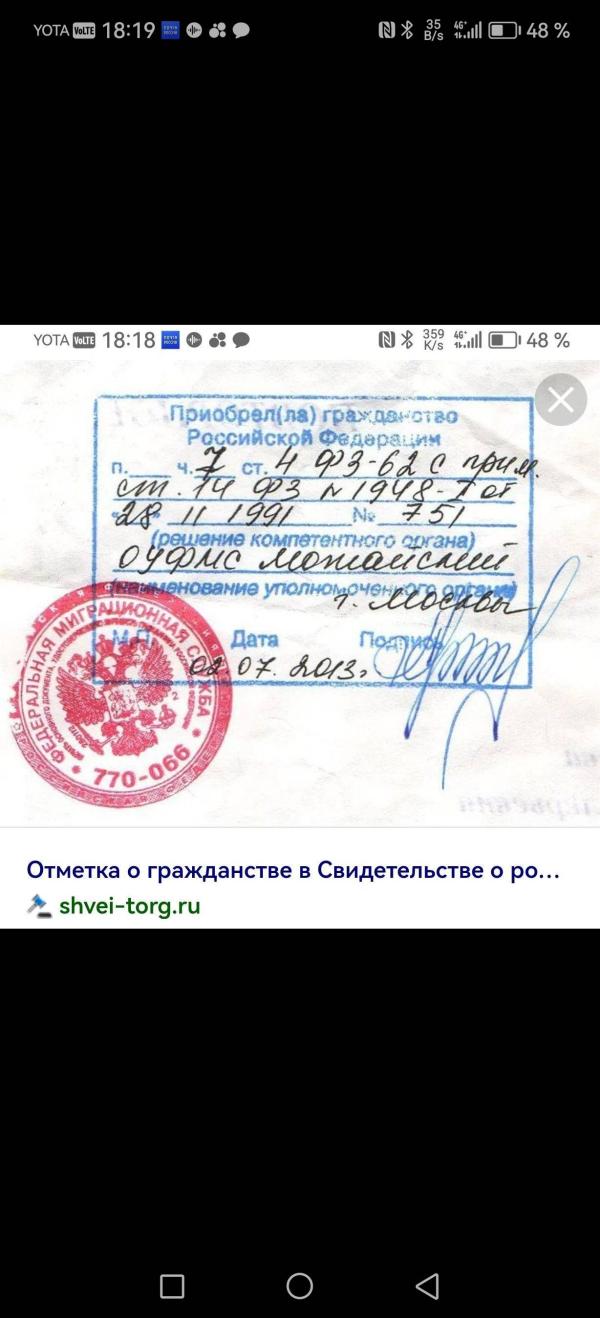 YOTA VoLTE 18:19 35 B/s 4G+ 48 %
YOTA VoLTE 18:18 359 K/s 4G+ 48 %
Приобрел(ла) гражданство
Российской Федерации
п.____ ч. 7 ст. 4 ФЗ-62 с прим.
ст. 14 ФЗ N 1948-I от
"28" 11 1991 № 751
(решение компетентного органа)
ОУФМС Можайский
(наименование уполномоченного органа)
г. Москвы
М.П. Дата Подпись
02 07. 2013г
ФЕДЕРАЛЬНАЯ МИГРАЦИОННАЯ СЛУЖБА
770-066
Отметка о гражданстве в Свидетельстве о ро...
shvei-torg.ru